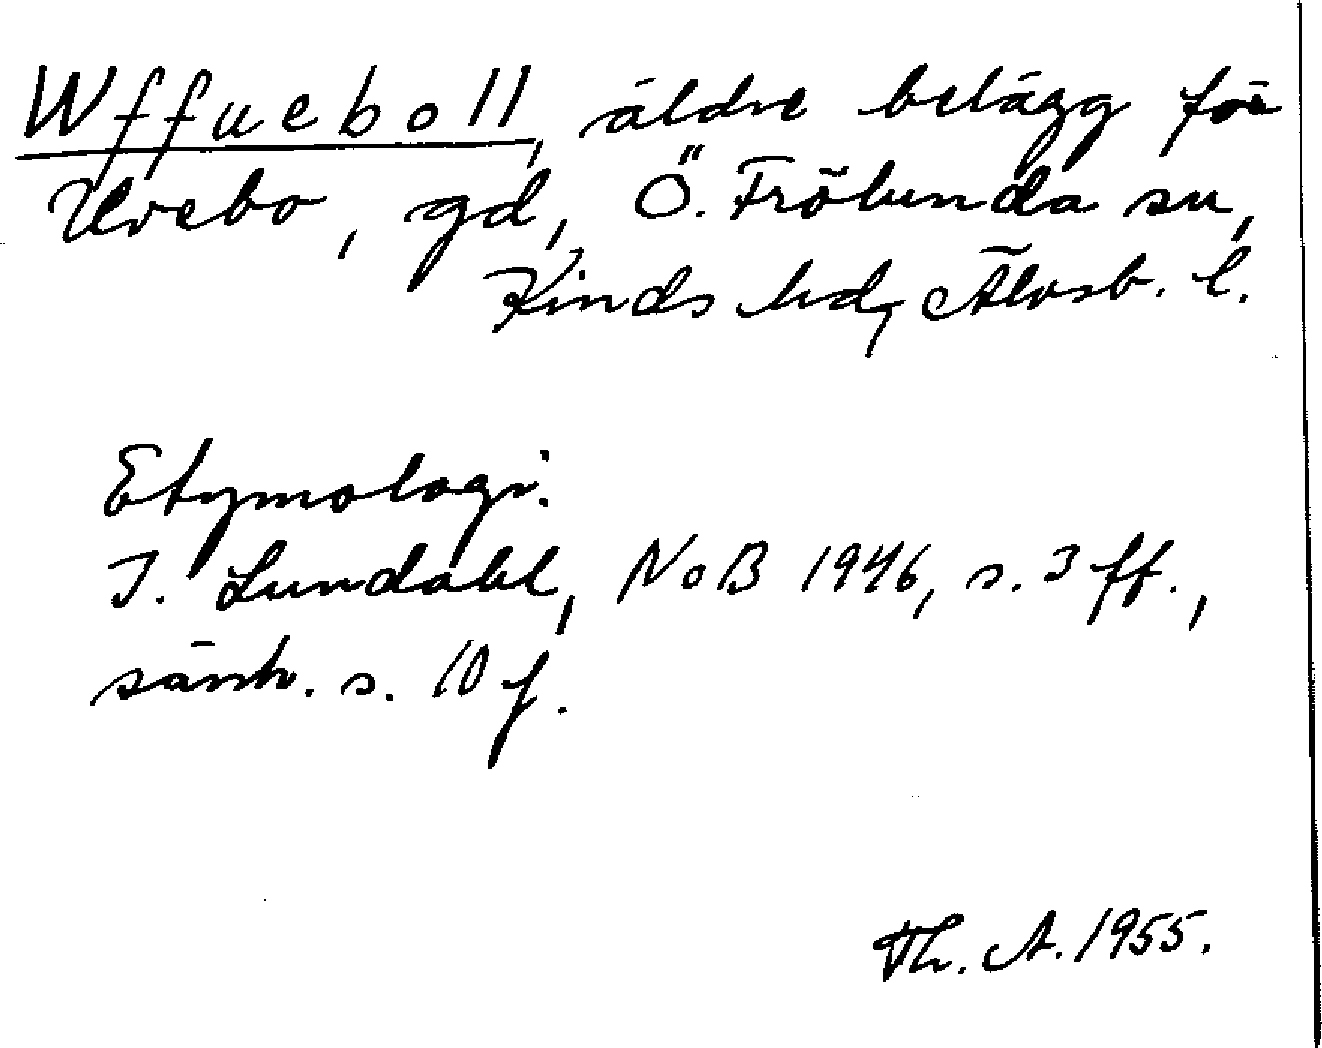 Wffueboll, äldre belägg för
Uvebo, gd, Ö. Frölunda sn,
Kinds hd, Älvsb. l.
Etymologi:
I. Lundahl, NoB 1946, s. 3 ff.,
särsk. s. 10 f.
Th. A. 1955.